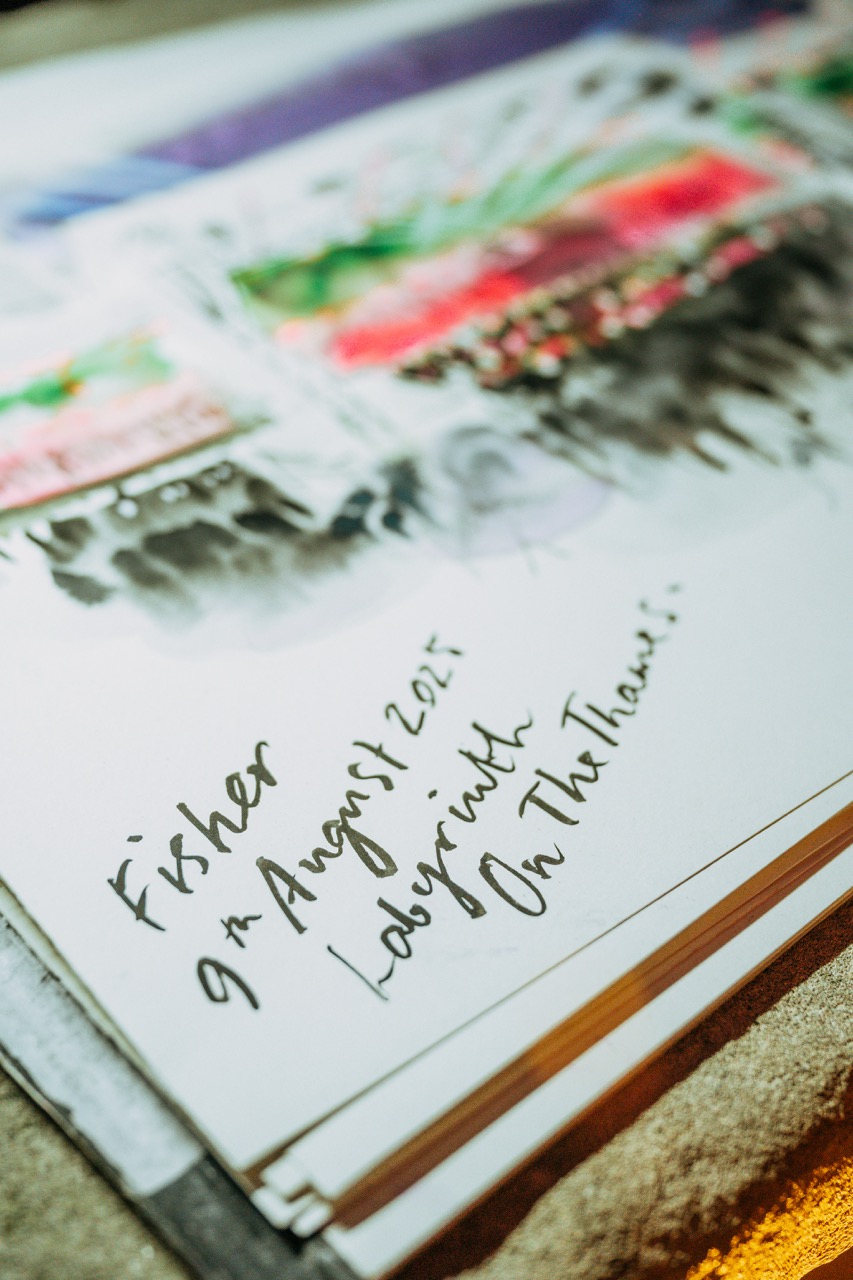 Fisher
9th August 2025
Labyrinth
On The Thames.